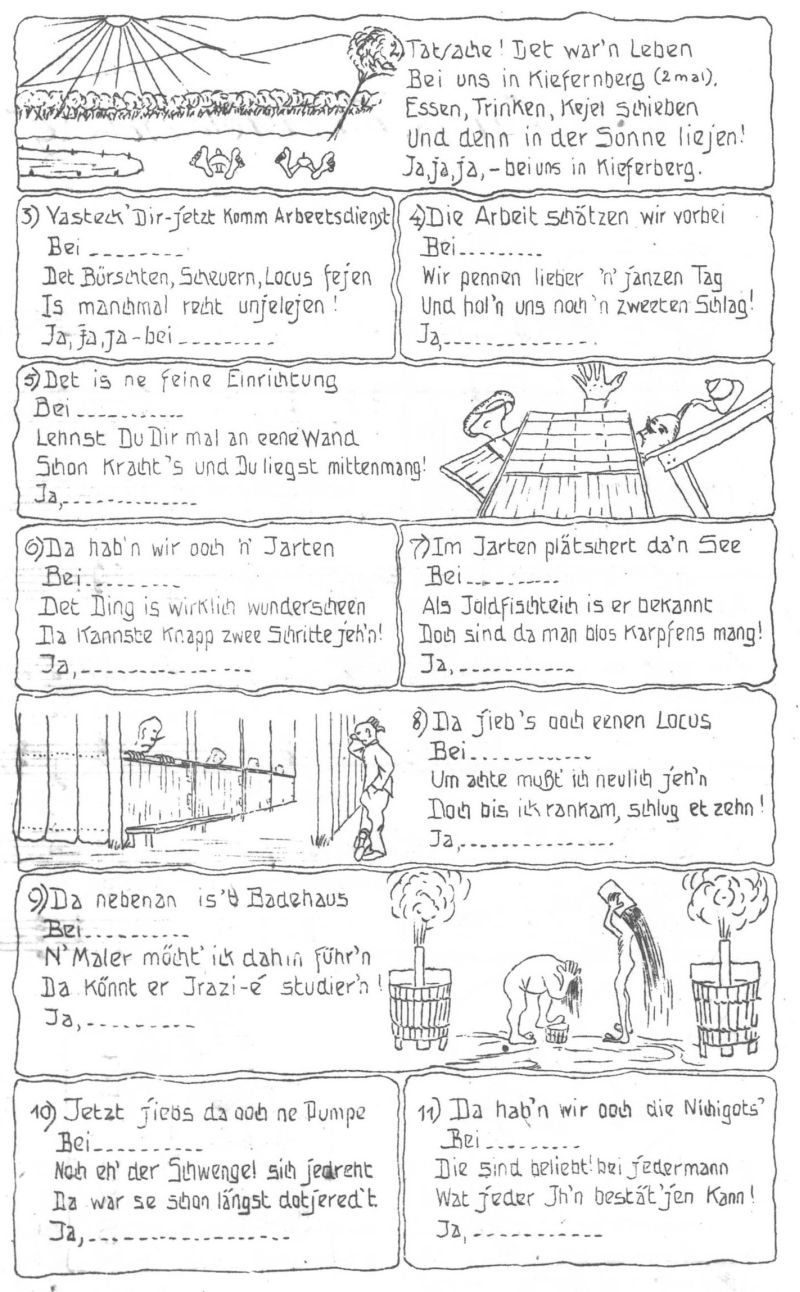 2) Tatsache! Det war'n Leben
Bei uns in Kiefernberg (2mal).
Essen, Trinken, Kejel schieben
Und denn in der Sonne liejen!
Ja, ja, ja, - bei uns in Kieferberg.
3) Vasteck' Dir-jetzt Komm Arbeetsdienst
Bei ---------
Det Bürschten, Scheuern, Locus fejen
Is manchmal recht unjelejen!
Ja, ja, ja - bei ---------
4) Die Arbeit schätzen wir vorbei
Bei ---------
Wir pennen lieber 'n' janzen Tag
Und hol'n uns noch 'n zweeten Schlag!
Ja, ------------
5) Det is ne feine Einrichtung
Bei ----------
Lehnst Du Dir mal an eene Wand
Schon Kracht's und Du liegst mittenmang!
Ja, ------------
6) Da hab'n wir ooch 'n' Jarten
Bei ---------
Det Ding is wirklich wunderscheen
Da Kannste Knapp zwee Schritte jeh'n!
Ja, --------------
7) Im Jarten plätschert da'n See
Bei ---------
Als Joldfischteich is er bekannt
Doch sind da man blos Karpfens mang!
Ja, ----------
8) Da jieb's ooch eenen Locus
Bei ----------
Um achte mußt' ich neulich jeh'n
Doch bis ick rankam, schlug et zehn!
Ja, -------------
9) Da nebenan is' Badehaus
Bei ----------
N' Maler möcht' ick dahin führ'n
Da Könnt er Jrazi-é studier'n!
Ja, ---------
10) Jetzt jiebs da ooch ne Pumpe
Bei ---------
Noch eh' der Schwengel sich jedreht
Da war se schon längst dotjered't.
Ja, -----------------
11) Da hab'n wir ooch die Nichigots'
Bei ---------
Die sind beliebt! bei jedermann
Wat jeder Jh'n bestät'jen Kann!
Ja, -----------